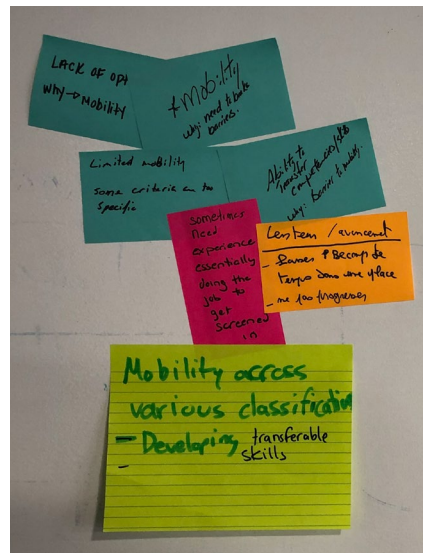 LACK OF OPP
WHY → MOBILITY
* Mobility
Why: need to
barriers.
Limited mobility
some criteria are too
specific
Ability to
transfer
competencies/skills
Why: Barrier to mobility.
sometimes
need
experience
essentially
doing the
job to
get
screened
in
/ avancement
- Beaucoup de
temps dans une place
- ne pas progresser
Mobility across
various classification
- Developing transferable
skills
-